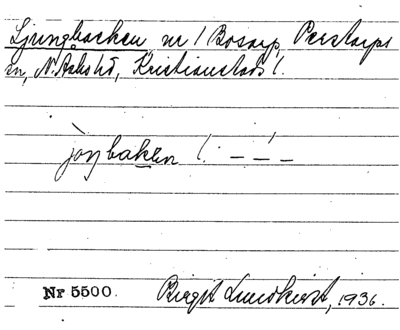 Ljungbacken nr 1 Bosarp, Perstorps
sn, N. Åsbo hd, Kristianstads l.
joŋbakən l. – –́ –
Nr 5500. Birgit Lundkvist, 1936.